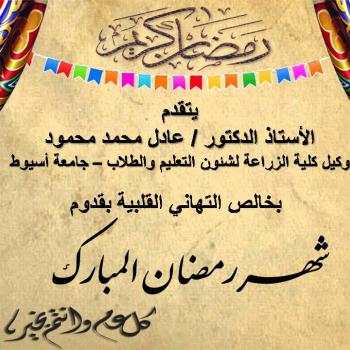 رمضان كريم
يتقدم
الأستاذ الدكتور / عادل محمد محمود
وكيل كلية الزراعة لشئون التعليم والطلاب – جامعة أسيوط
بخالص التهاني القلبية بقدوم
شهر رمضان المبارك
كل عام وانتم بخير